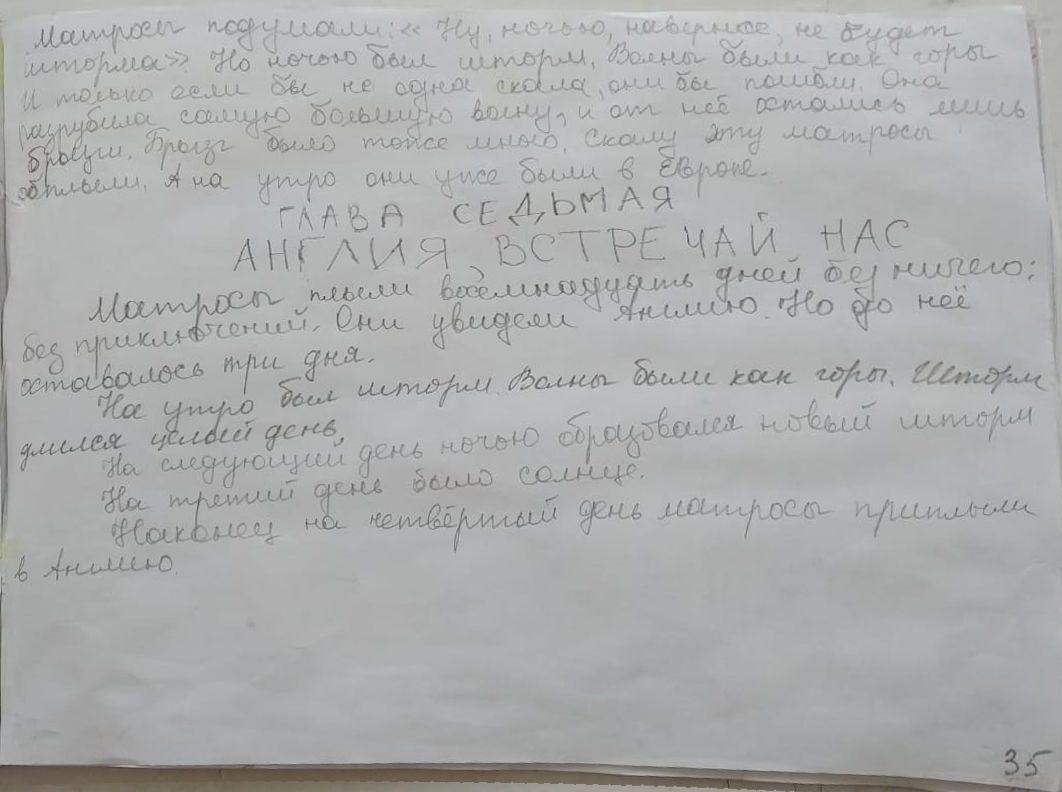 Матросы подумали: «Ну, ночью, наверное, не будет
шторма». Но ночью был шторм. Волны были как горы
И только если бы не одна скала, они бы погибли. Она
разрубила самую большую волну, и от неё остались лишь
брызги. Брызг было тоже много. Скалу эту матросы
обплыли. А на утро они уже были в Европе.
ГЛАВА СЕДЬМАЯ
АНГЛИЯ, ВСТРЕЧАЙ НАС
Матросы плыли восемнадцать дней без ничего:
без приключений. Они увидели Англию. Но до неё
оставалось три дня.
На утро был шторм. Волны были как горы. Шторм
длился целый день.
На следующий день ночью образовался новый шторм
На третий день было солнце.
Наконец на четвёртый день матросы приплыли
в Англию.
35